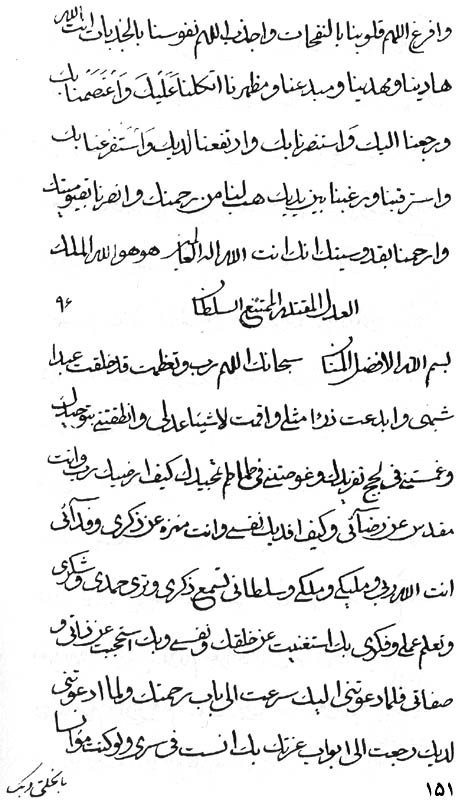 وافرغ اللهم قلوبنا بالنفحات واجذب اللهم نفوسنا بالجذبات انت الله
هادينا ومهدينا ومبدعنا ومظهرنا اتكلنا عَلَيكَ وَاعْتَصَمنا بك
ورجعنا اليك وَاستنصرنا بك وارتفعنا لديك وَاستفرعنا بك
واسترقبنا ورغبنا بين يديك هب لنا من رحمتك وانصرنا بقيوميتك
وارحمنا بقدوسيتك انك انت الله اله العالمين هو هو الله الملك
العدل المقتدر الممتنع السلطان ٩۶
بسم الله الافضل المنان سبحانك اللهم رب وتعظمت قد خلقت عبدا
شبهى وابدعت ذرا مثلى واقمت لاشيئا عدلى وانطقتنى بتوحيدك
وغمستنى فى لجج تفريدك وغوصتنى فى طماطم تمجيدك كيف ارضيك رب وانت
مقدس عن رضآئى وكيف افديك نفسى وانت منزه عن ذكرى وفدآئى
انت الله ربى ومليكى وملكى وسلطانى تسمع ذكرى وترى حمدى وشكرى
وتعلم عملى وفكرى بك استغنيت عن خلقك ونفسى وبك احتجبت عن ذاتى و
صفاتى فلما دعوتنى اليك سرعت الى باب رحمتك ولما ادعوتنى
لديك رجعت الى ابواب عزتك بك انست فى سرى ولو كنت موانسا
بالخلق وبك
١۵١